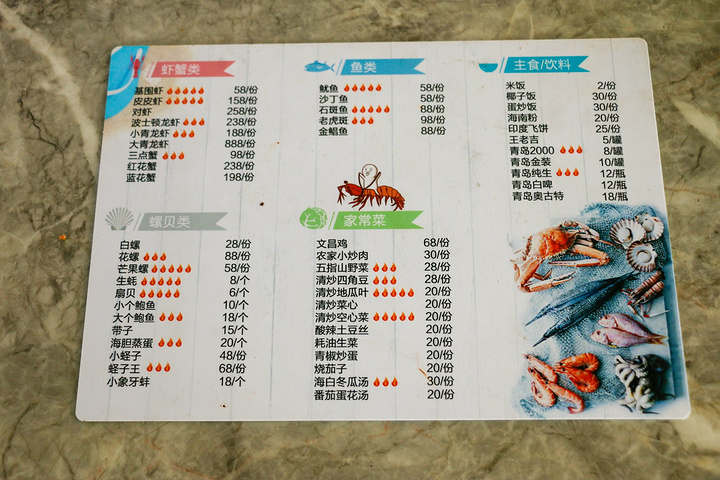 虾蟹类
基围虾 58/份
皮皮虾 158/份
对虾 258/份
波士顿龙虾 238/份
小青龙虾 188/份
大青龙虾 888/份
三点蟹 98/份
红花蟹 238/份
蓝花蟹 198/份
鱼类
鱿鱼 58/份
沙丁鱼 58/份
石斑鱼 88/份
老虎斑 98/份
金鲳鱼 88/份
主食/饮料
米饭 2/份
椰子饭 30/份
蛋炒饭 30/份
海南粉 20/份
印度飞饼 25/份
王老吉 5/罐
青岛2000 8/罐
青岛金装 10/罐
青岛纯生 12/瓶
青岛白啤 12/瓶
青岛奥古特 18/瓶
螺贝类
白螺 28/份
花螺 88/份
芒果螺 58/份
生蚝 8/个
扇贝 6/个
小个鲍鱼 10/个
大个鲍鱼 18/个
带子 15/个
海胆蒸蛋 20/个
小蛏子 48/份
蛏子王 68/份
小象牙蚌 18/个
家常菜
文昌鸡 68/份
农家小炒肉 30/份
五指山野菜 28/份
清炒四角豆 28/份
清炒地瓜叶 20/份
清炒菜心 20/份
清炒空心菜 20/份
酸辣土豆丝 20/份
耗油生菜 20/份
青椒炒蛋 20/份
烧茄子 20/份
海白冬瓜汤 30/份
番茄蛋花汤 20/份